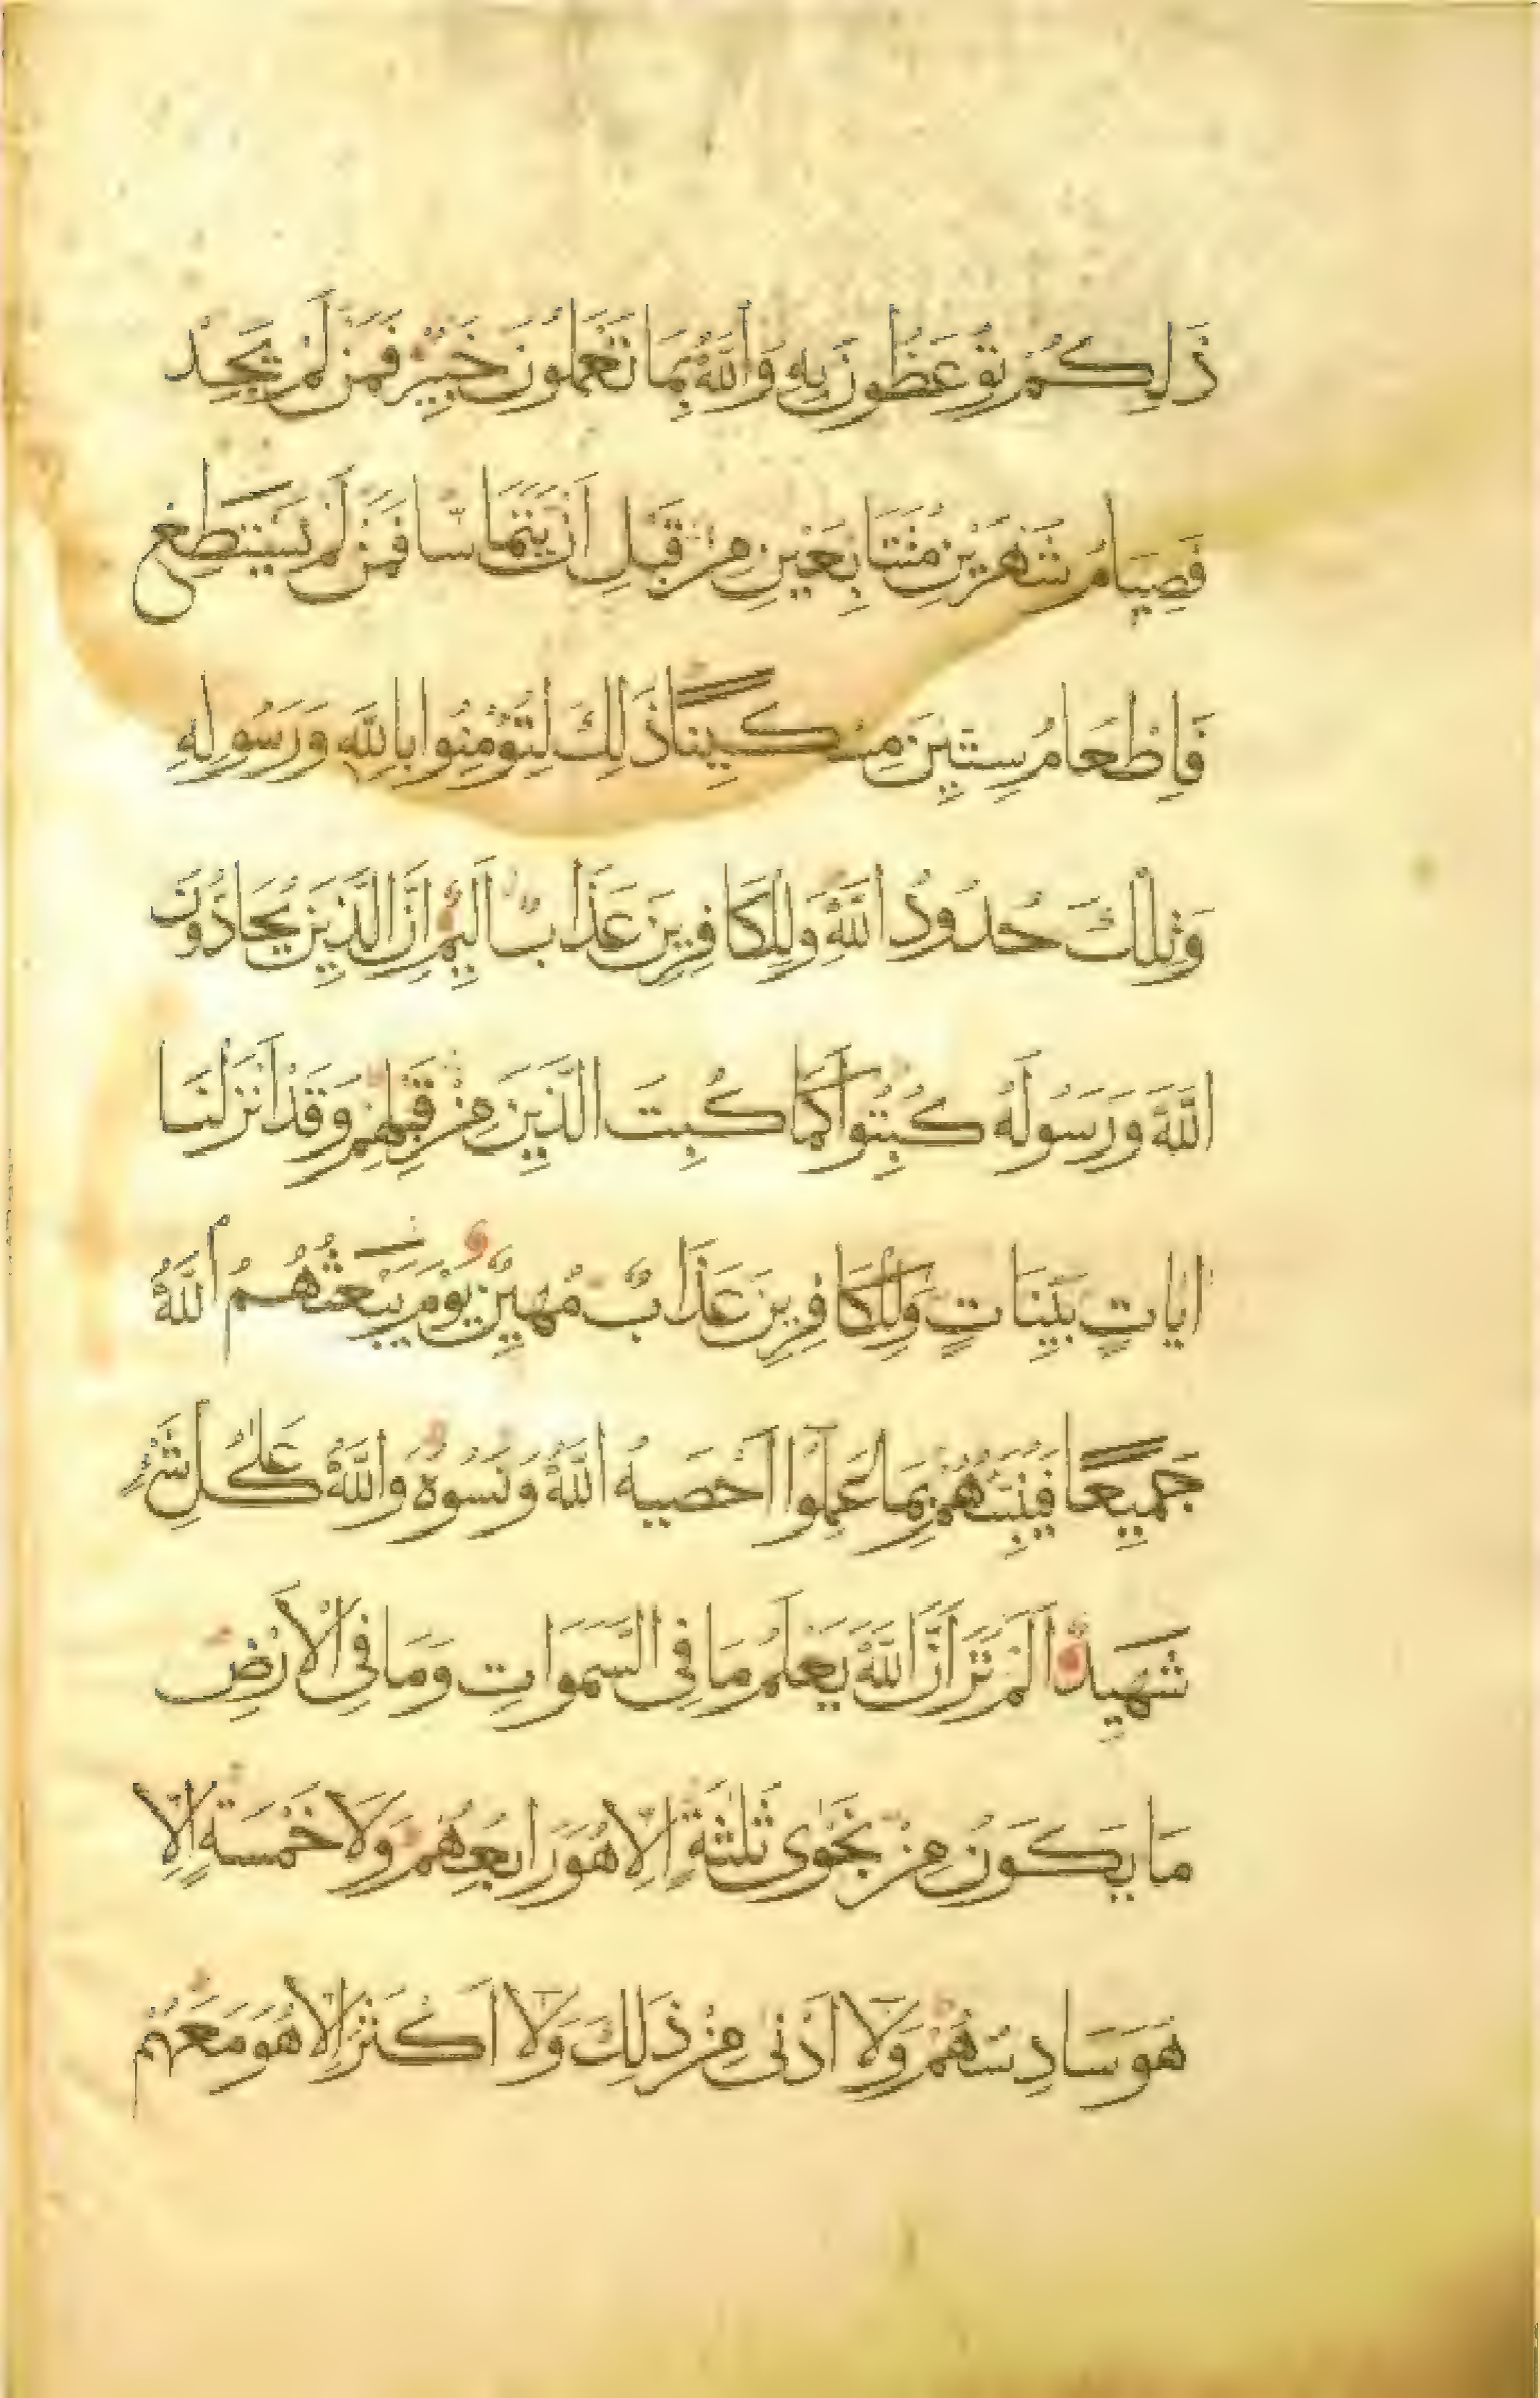 ذَلِكُمْ تُوعَظُونَ بِهِ وَاللَّهُ بِمَا تَعْمَلُونَ خَبِيرٌ فَمَنْ لَمْ يَجِدْ
فَصِيَامُ شَهْرَيْنِ مُتَتَابِعَيْنِ مِنْ قَبْلِ أَنْ يَتَمَاسَّا فَمَنْ لَمْ يَسْتَطِعْ
فَاِطْعَامُ سِتِّينَ مِسْكِينًا ذَلِكَ لِتُؤْمِنُوا بِاللَّهِ وَرَسُولِهِ
وَتِلْكَ حُدُودُ اللَّهِ وَلِلْكَافِرِينَ عَذَابٌ اَلِيمٌ اِنَّ الَّذِينَ يُحَادُّونَ
اللَّهَ وَرَسُولَهُ كُبِتُوا كَمَا كُبِتَ الَّذِينَ مِنْ قَبْلِهِمْ وَقَدْ اَنْزَلْنَا
اٰيَاتٍ بَيِّنَاتٍ وَلِلْكَافِرِينَ عَذَابٌ مُهِينٌ يَوْمَ يَبْعَثُهُمُ اللَّهُ
جَمِيعًا فَيُنَبِّئُهُمْ بِمَا عَمِلُوا اَحْصَيهُ اللَّهُ وَنَسُوهُ وَاللَّهُ عَلَى كُلِّ شَيْءٍ
شَهِيدٌ اَلَمْ تَرَ اَنَّ اللَّهَ يَعْلَمُ مَا فِي السَّمَوَاتِ وَمَا فِي الْاَرْضِ
مَا يَكُونُ مِنْ نَجْوَى ثَلٰثَةٍ اِلَّا هُوَ رَابِعُهُمْ وَلَا خَمْسَةٍ اِلَّا
هُوَ سَادِسُهُمْ وَلَا اَدْنَى مِنْ ذَلِكَ وَلَا اَكْثَرَ اِلَّا هُوَ مَعَهُمْ